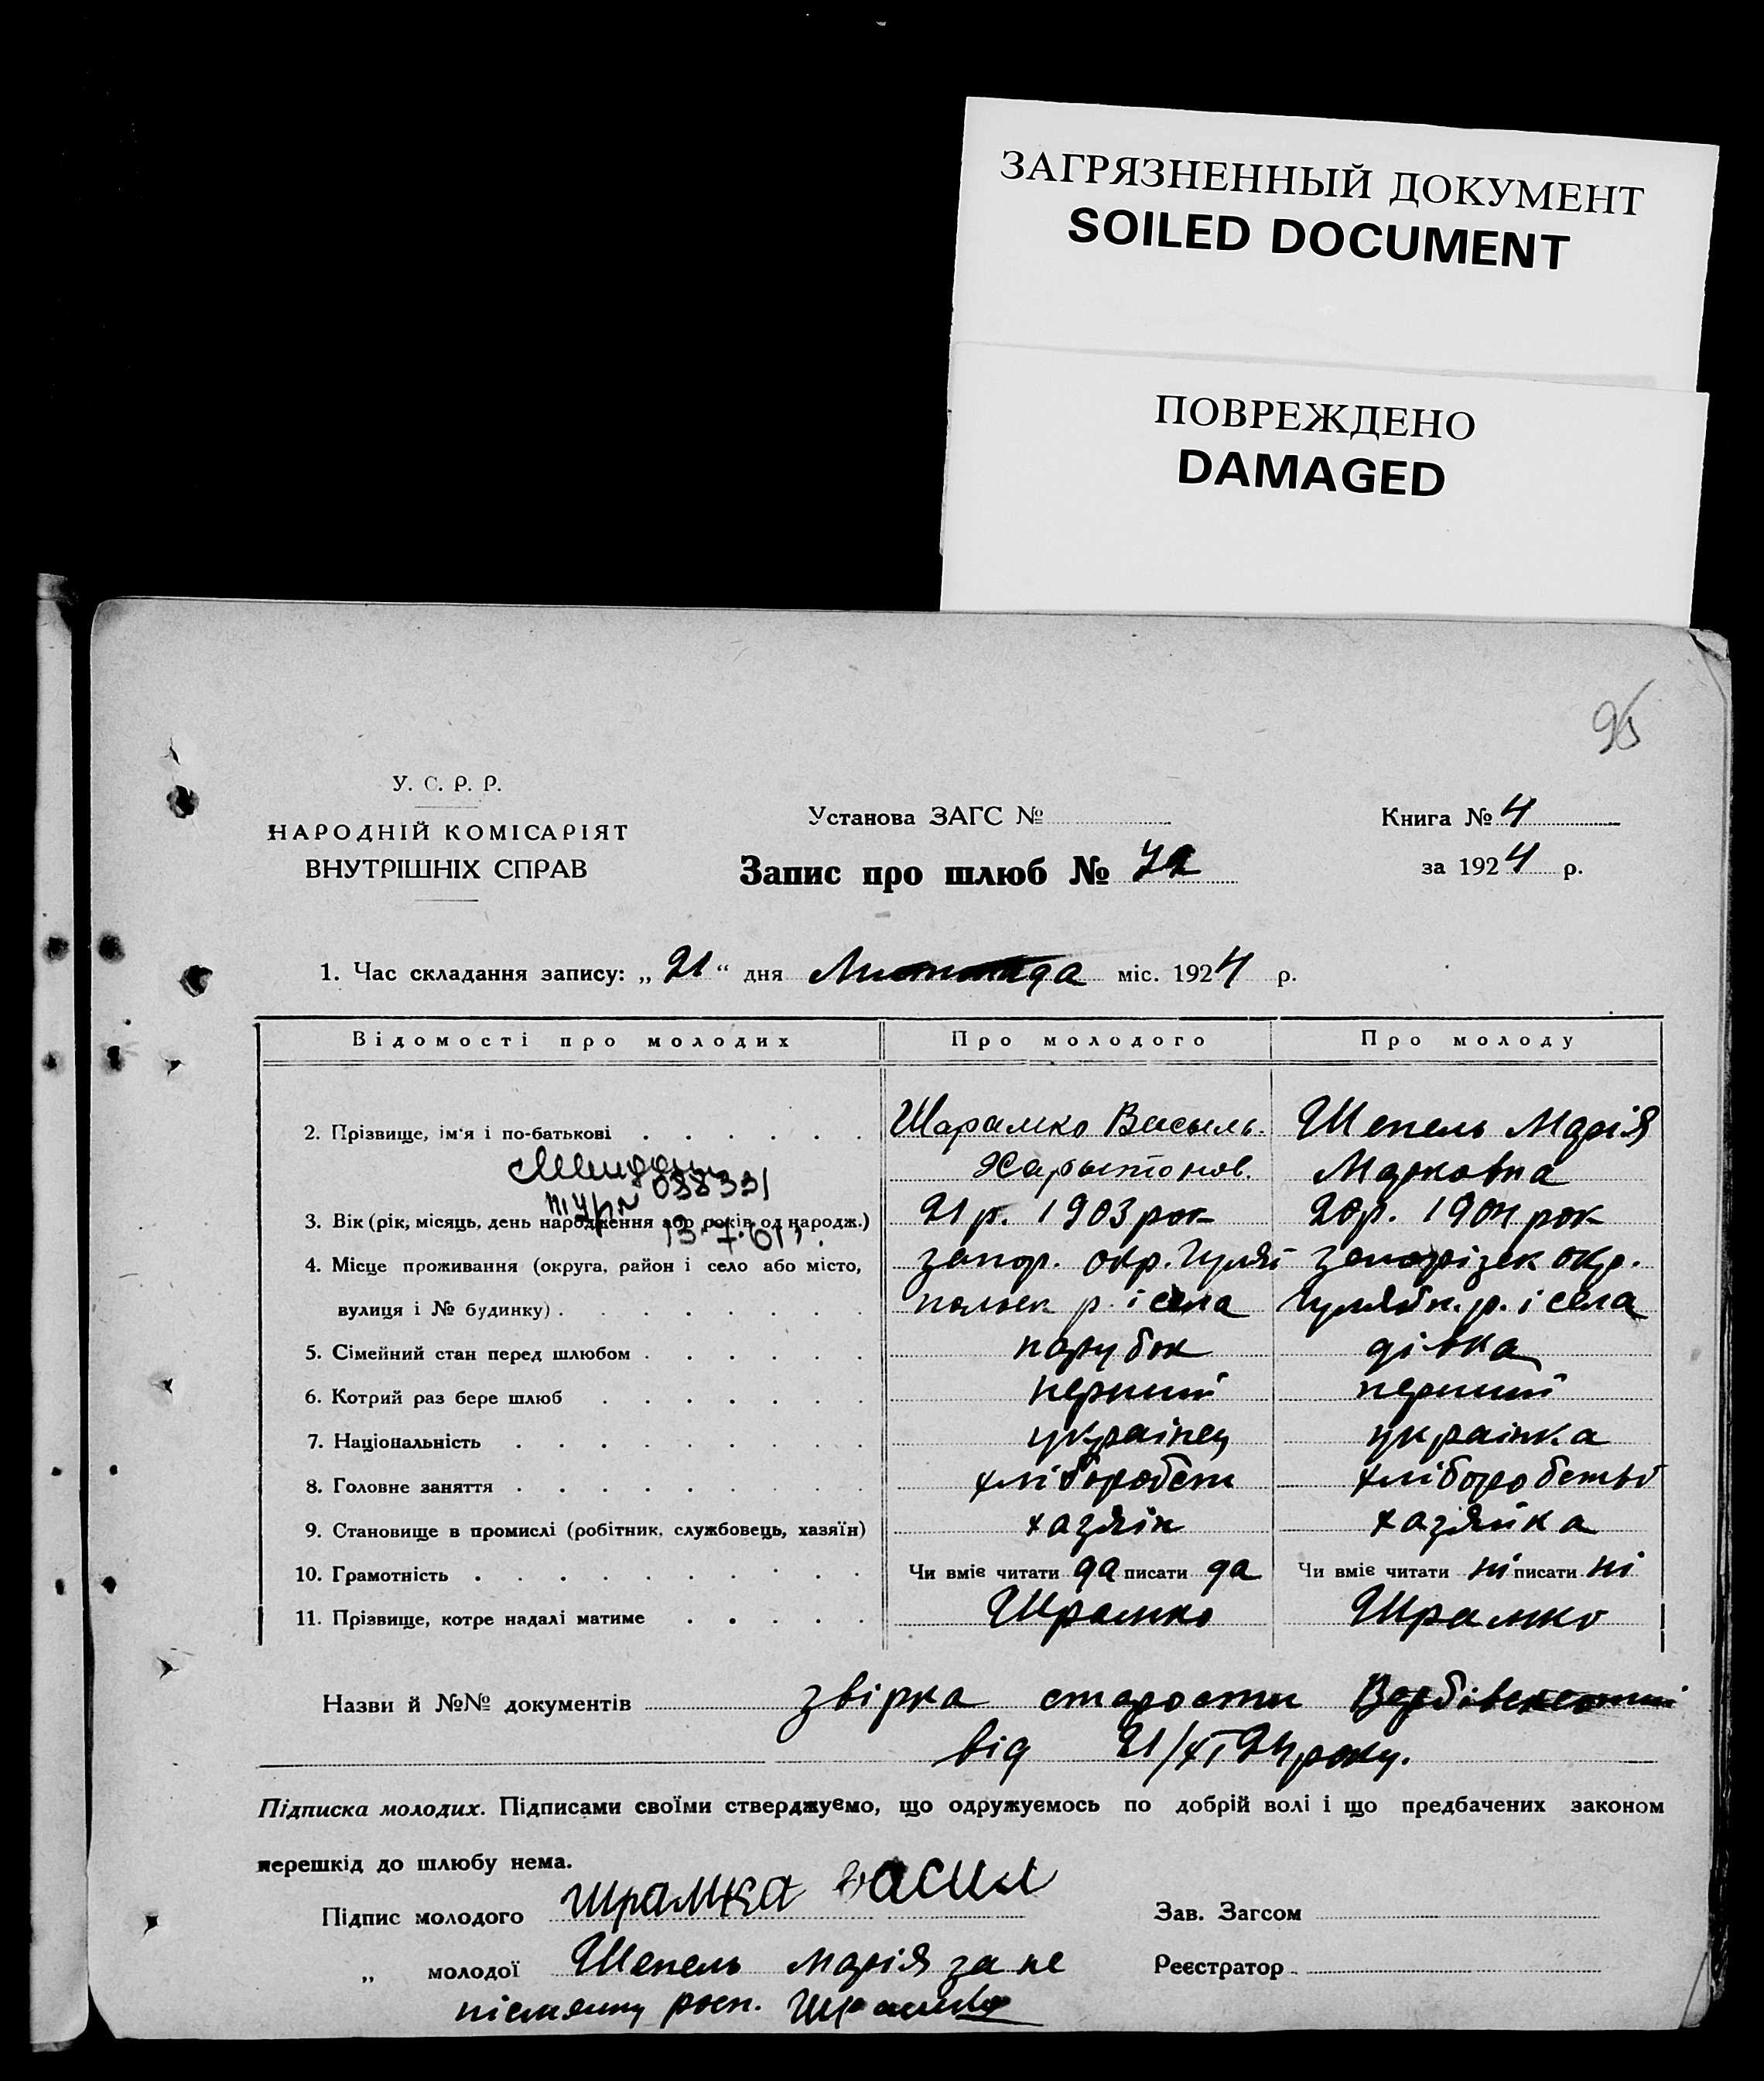 ЗАГРЯЗНЕННЫЙ ДОКУМЕНТ
SOILED DOCUMENT
ПОВРЕЖДЕНО
DAMAGED
95
У. С. Р. Р.
НАРОДНІЙ КОМІСАРІЯТ
ВНУТРІШНІХ СПРАВ
Установа ЗАГС №
Запис про шлюб № 72
Книга № 4
за 1924 р.
1. Час складання запису: „ 21 “ дня Листопада міс. 1924 р.
Відомості про молодих Про молодого Про молоду
2. Прізвище, ім'я і по-батькові Шарамко Васыль. Шепель Марія
Харытонов. Марковна
088331
3. Вік (рік, місяць, день народження або років од народж.) 21 р. 1903 рок 20 р. 1904 рок
13.7.61 г.
4. Місце проживання (округа, район і село або місто, запор. окр. Гуляй запорізск окр.
вулиця і № будинку) польск р. і села Гуляйп. р. і села
5. Сімейний стан перед шлюбом парубок дівка
6. Котрий раз бере шлюб перший перший
7. Національність українец українка
8. Головне заняття хліборобств хліборобство
9. Становище в промислі (робітник, службовець, хазяїн) хазяін хазяйка
10. Грамотність Чи вміє читати да писати да Чи вміє читати ні писати ні
11. Прізвище, котре надалі матиме Шрамко Шрамко
Назви й №№ документів звірка старости
від 21/XI 24 року.
Підписка молодих. Підписами своїми стверджуємо, що одружуємось по добрій волі і що предбачених законом
перешкід до шлюбу нема.
Підпис молодого шрамка васил Зав. Загсом
„ молодої Шепель Марія за не Реєстратор
письменну росп. Шрамко